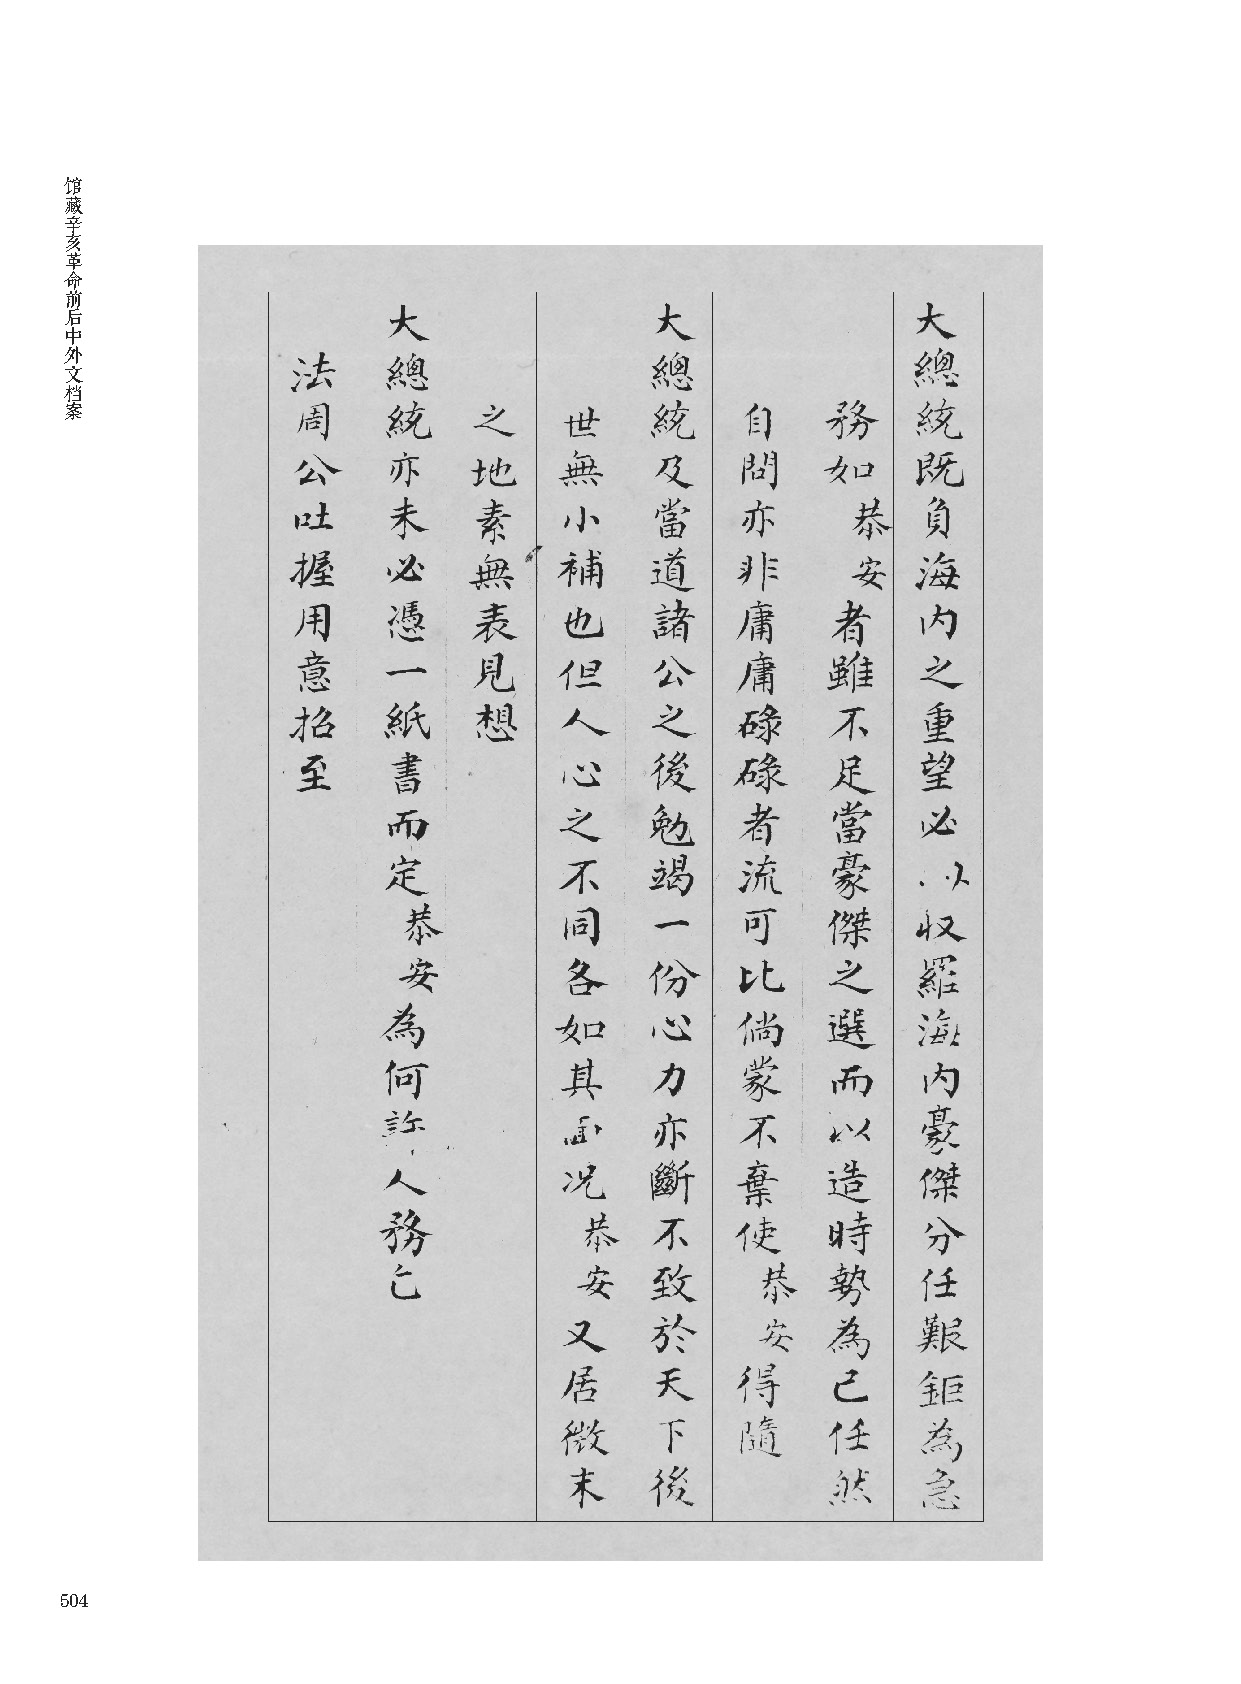 大總統既負海内之重望必以收羅海内豪傑分任艱鉅為急
務如恭安者雖不足當豪傑之選而以造時勢為己任然
自問亦非庸庸碌碌者流可比倘蒙不棄使恭安得隨
大總統及當道諸公之後勉竭一份心力亦斷不致於天下後
世無小補也但人心之不同各如其面况恭安又居微末
之地素無表見想
大總統亦未必憑一紙書而定恭安為何許人務乞
法周公吐握用意招至
馆藏辛亥革命前后中外文档案
504